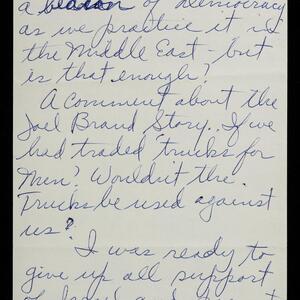 a beacon of Democracy
as we practice it in
the Middle East - but
is that enough?
A comment about the
Joel Brand Story.. If we
had traded trucks for
Men? Wouldn't the
Trucks be used against
us?
I was ready to
give up all support
of